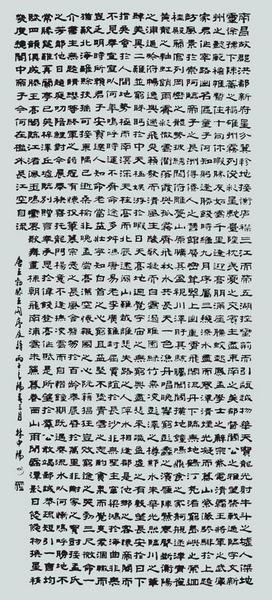 南昌故郡洪都新府星分翼軫地接衡廬襟三江而帶五湖控蠻荊而引甌越物華天寶龍光射牛斗之墟人傑地
靈徐孺下陳蕃之榻雄州霧列俊采星馳臺隍枕夷夏之交賓主盡東南之美都督閻公之雅望棨戟遙臨宇文新
州之懿範襜帷暫駐十旬休暇勝友如雲千里逢迎高朋滿座騰蛟起鳳孟學士之詞宗紫電清霜王將軍之武庫
家君作宰路出名區童子何知躬逢勝餞時維九月序屬三秋潦水盡而寒潭清煙光凝而暮山紫儼驂騑於上路
訪風景於崇阿臨帝子之長洲得仙人之舊館層巒聳翠上出重霄飛閣流丹下臨無地鶴汀鳧渚窮島嶼之縈迴
桂殿蘭宮列岡巒之體勢披繡闥俯雕甍山原曠其盈視川澤紆其駭矚閭閻撲地鐘鳴鼎食之家舸艦迷津青雀黃龍
之舳雲銷雨霽彩徹區明落霞與孤鶩齊飛秋水共長天一色漁舟唱晚響窮彭蠡之濱雁陣驚寒聲斷衡陽
之浦遙襟甫暢逸興遄飛爽籟發而清風生纖歌凝而白雲遏睢園綠竹氣凌彭澤之樽鄴水朱華光照臨川之筆
四美具二難並窮睇眄於中天極娛遊於暇日天高地迥覺宇宙之無窮興盡悲來識盈虛之有數望長安於日下目吳會於雲間
地勢極而南溟深天柱高而北辰遠關山難越誰悲失路之人萍水相逢盡是他鄉之客懷帝閽而
不見奉宣室以何年嗟乎時運不齊命途多舛馮唐易老李廣難封屈賈誼於長沙非無聖主竄梁鴻於海曲豈乏
明時所賴君子見機達人知命老當益壯寧移白首之心窮且益堅不墜青雲之志酌貪泉而覺爽處涸轍以猶歡
北海雖賒扶搖可接東隅已逝桑榆非晚孟嘗高潔空餘報國之情阮籍猖狂豈效窮途之哭勃三尺微命一
介書生無路請纓等終軍之弱冠有懷投筆慕宗愨之長風舍簪笏於百齡奉晨昏於萬里非謝家之寶樹接孟氏
之芳鄰他日趨庭叨陪鯉對今茲捧袂喜托龍門楊意不逢撫凌雲而自惜鍾期既遇奏流水以何慚嗚呼勝地不
常盛筵難再蘭亭已矣梓澤丘墟臨別贈言幸承恩於偉餞登高作賦是所望於群公敢竭鄙懷恭疏短引一言均
賦四韻俱成請灑潘江各傾陸海云爾滕王高閣臨江渚佩玉鳴鸞罷歌舞畫棟朝飛南浦雲珠簾暮捲西山雨閑雲潭影日悠悠物換星移幾
度秋閣中帝子今何在檻外長江空自流
唐王勃滕王閣序